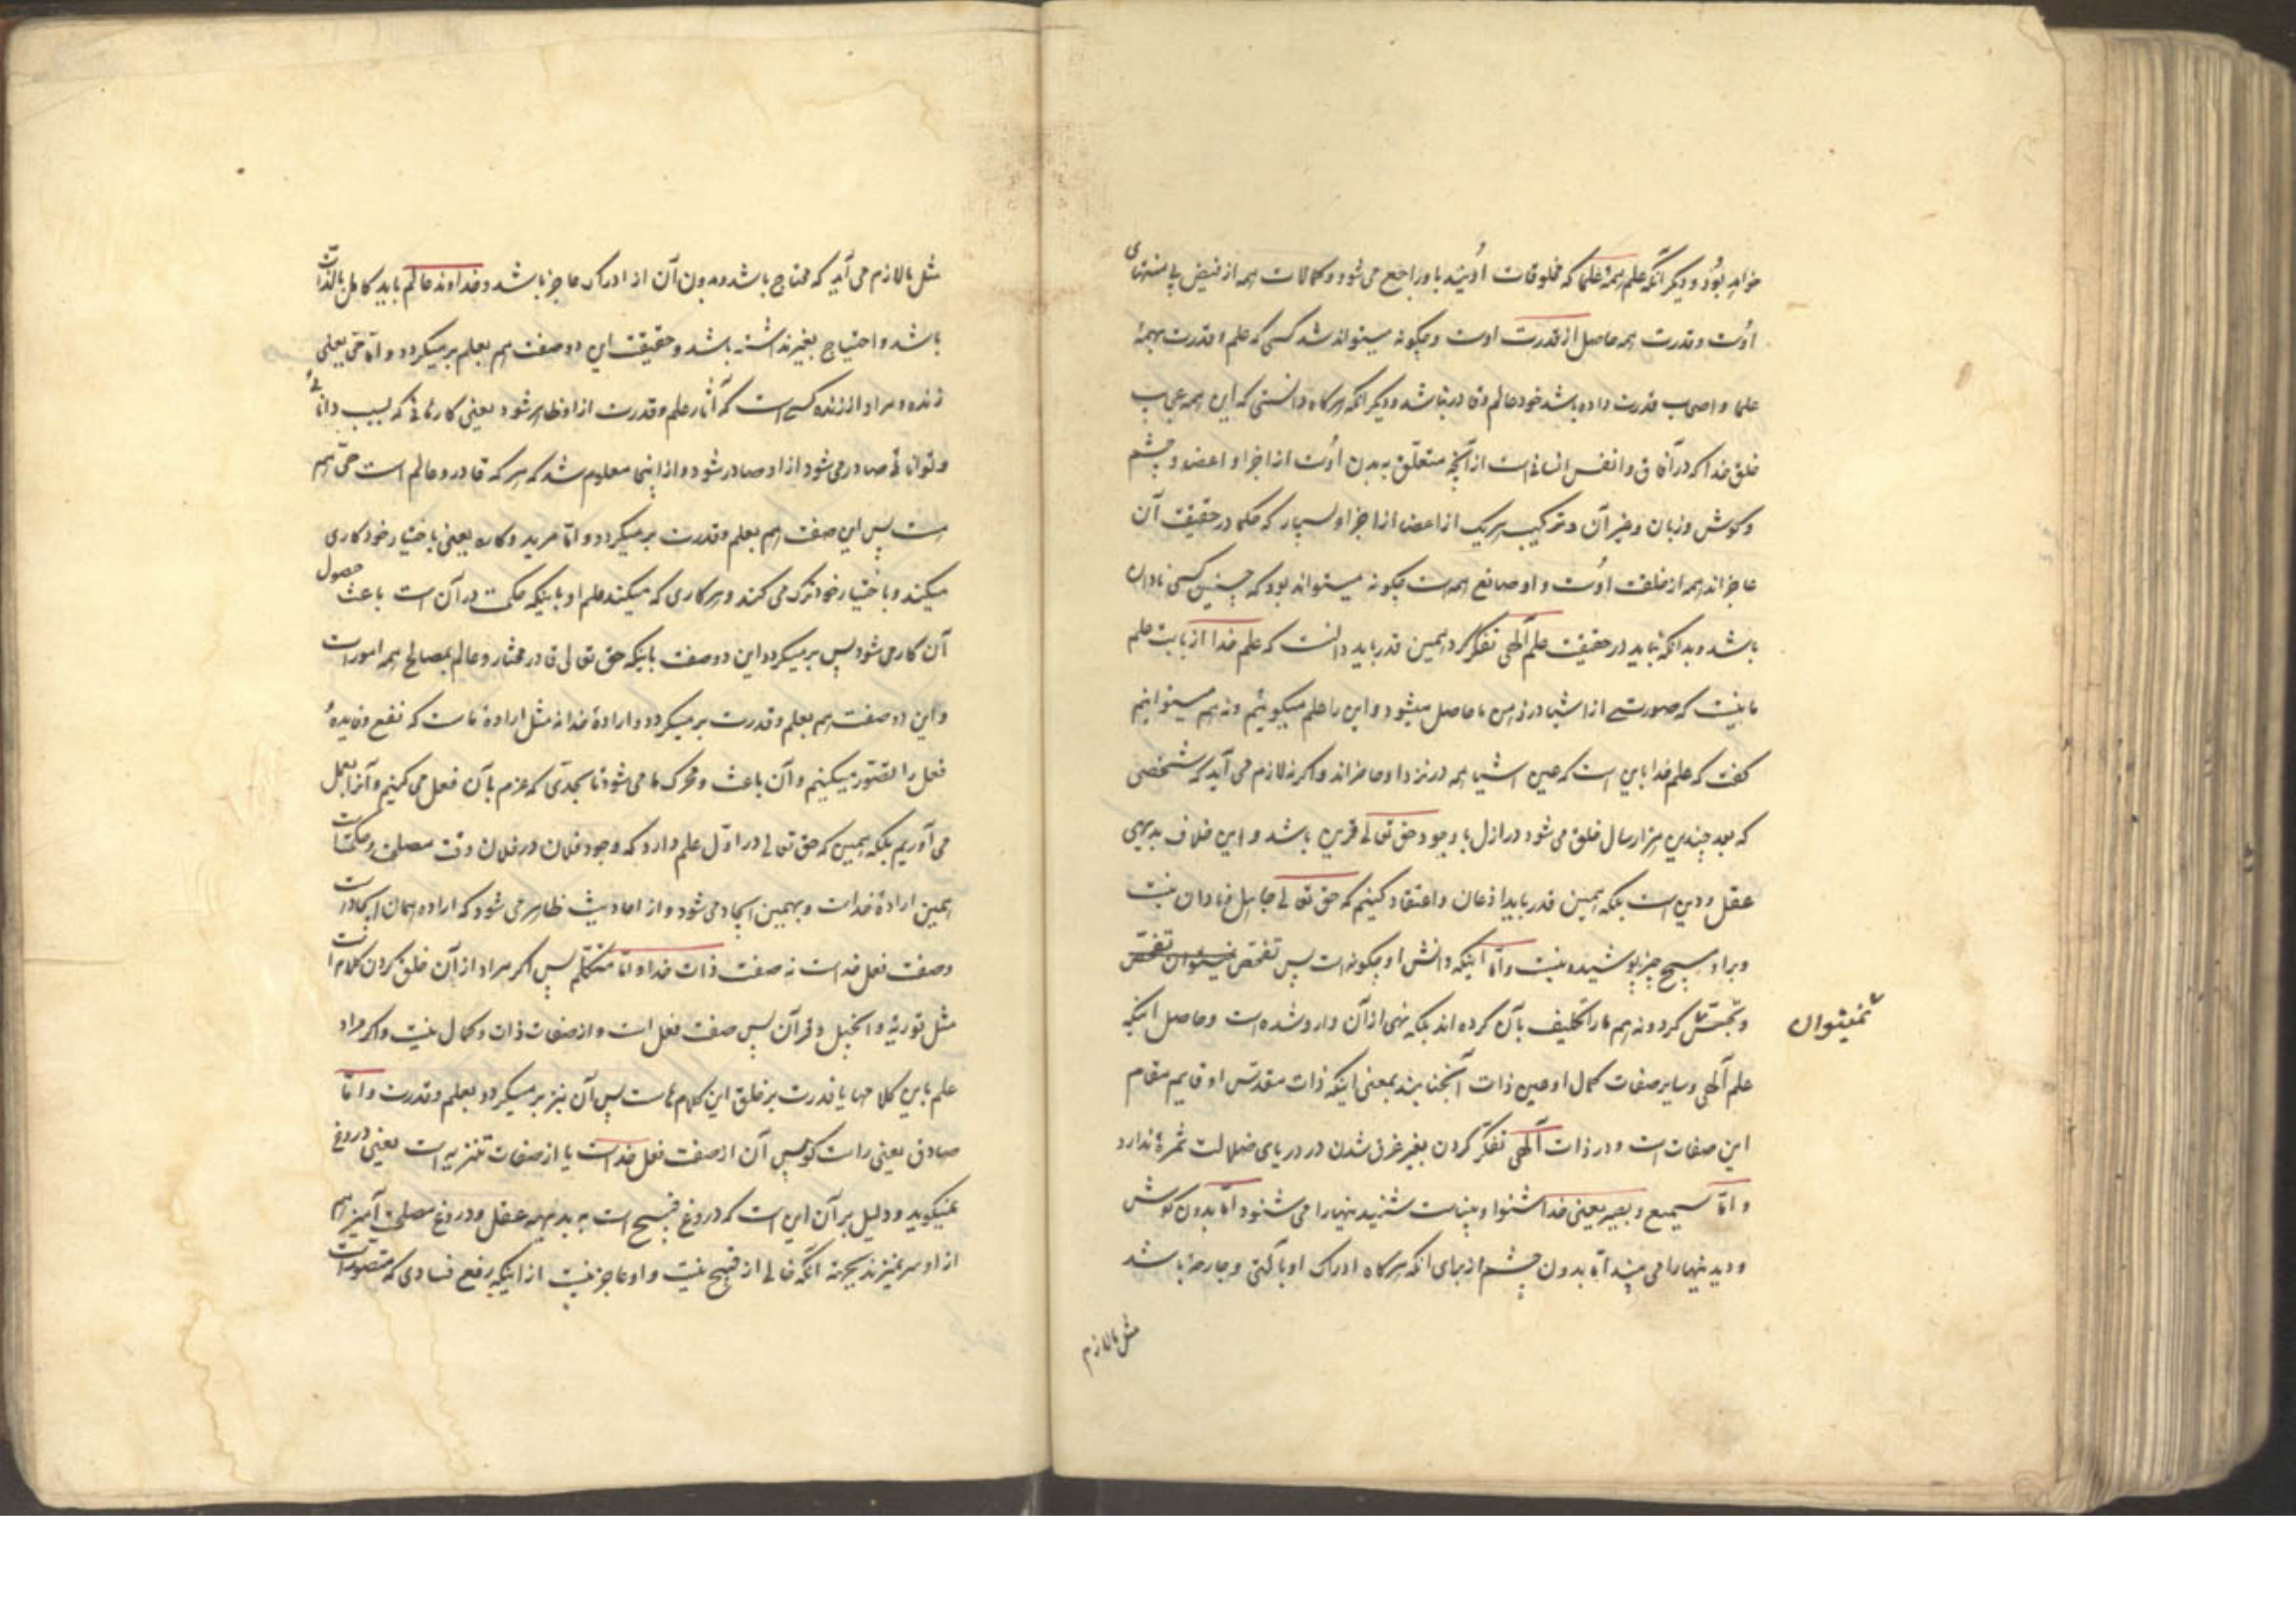 خواهد بود و دیگر آنکه علم همهٔ علما که مخلوقات اویند باو راجع می شود و کمالات همه از فیض بی منتهای
اوست و قدرت همه حاصل از قدرت اوست و چگونه میتواند شد کسی که علم و قدرت بهمهٔ
علما و اصحاب قدرت داده باشد خود عالم و قادر نباشد و دیگر آنکه هرگاه دانستی که این همه عجایب
خلق خدا که در آفاق و انفس انسانی است از آنچه متعلّق به بدن اوست از اجزا و اعضا و چشم
و گوش و زبان و غیر آن و ترکیب هریک از اعضا از اجزاء بسیار که حکما در حقیقت آن
عاجزاند همه از خلقت اوست و او صانع همه است چگونه میتواند بود که چنین کسی نادان
باشد و بدانکه نباید در حقیقت علم آلهی تفکّر کرد همین قدر باید دانست که علم خدا از بابت علم
ما نیست که صورتی از اشیا در ذهن ما حاصل میشود و این را علم میگوییم و نه هم میتوانیم
گفت که علم خدا باین است که عین اشیا همه در نزد او حاضراند و اگر نه لازم می آید که شخصی
که بعد چندین هزار سال خلق می شود در ازل با وجود حق تعالی قرین باشد و این خلاف بدیهی
عقل و دین است بلکه همین قدر باید اذعان و اعتقاد کنیم که حق تعالی جاهل و نادان نیست
و بر او هیچ چیز پوشیده نیست و امّا اینکه دانش او چگونه است پس تفحّص میتوان تفحّص
نمیتوان
و تجسّس کرد و نه هم ما را تکلیف بآن کرده اند بلکه نهی از آن وارد شده است و حاصل اینکه
علم آلهی و سایر صفات کمال او عین ذات آنجنابند بمعنی اینکه ذات مقدّس او قایم مقام
این صفات است و در ذات آلهی تفکّر کردن بغیر غرق شدن در دریای ضلالت ثمرهٔ ندارد
و امّا سمیع و بصیر یعنی خدا شنوا و بیناست شنیدنیها را می شنود امّا بدون گوش
و دیدنیها را می بیند امّا بدون چشم از برای آنکه هرگاه ادراک او بآلتی و جارحهٔ باشد
مثل ما لازم
مثل ما لازم می آید که محتاج باشد و بدون آن از ادراک عاجز باشد و خداوند عالم باید کامل بالذّات
باشد و احتیاج بغیر نداشته باشد و حقیقت این دو صفت هم بعلم بر میگردد و امّا حیّ یعنی
زنده و مراد از زنده کسی است که آثار علم و قدرت از او ظاهر شود یعنی کارهائی که بسبب دانائی
و توانائی صادر می شود از او صادر شود و از اینجا معلوم شد که هرکه قادر و عالم است حیّ هم
هست پس این صفت هم بعلم و قدرت بر میگردد و امّا مرید و کاره یعنی باختیار خود کاری
میکند و باختیار خود ترک می کند و هر کاری که میکند علم او باینکه حکمت در آن است باعث حصول
آن کار می شود پس بر میگردد این دو صفت باینکه حق تعالی قادر مختار و عالم بمصالح همه امور است
و این دو صفت هم بعلم و قدرت بر میگردد و ارادهٔ خدا نه مثل ارادهٔ ماست که نفع و فایدهٔ
فعل را تصّور میکنیم و آن باعث و محرک ما می شود تا بحدّی که عزم بآن فعل می کنیم و آنرا بعمل
می آوریم بلکه همین که حق تعالی در اوّل علم دارد که وجود فلان در فلان وقت مصلحت و حکمت است
همین ارادهٔ خداست و بهمین ایجاد می شود و از احادیث ظاهر می شود که اراده همان ایجاد است
و صفت فعل خداست نه صفت ذات خدا و امّا متکلّم پس اگر مراد از آن خلق کردن کلام است
مثل توریة و انجیل و قرآن پس صفت فعل است و از صفات ذات و کمال نیست و اگر مراد
علم باین کلامها یا قدرت بر خلق این کلام هاست پس آن نیز بر میگردد بعلم و قدرت و امّا
صادق یعنی راست گو پس آن از صفت فعل خداست یا از صفات تنزیه است یعنی دروغ
نمیگوید و دلیل بر آن این است که دروغ قبیح است به بدیههٔ عقل و دروغ مصلحت آمیز هم
از او سر نمیزند بجهة آنکه خالی از قبح نیست و او عاجز نیست از اینکه رفع فسادی که متصوّر است